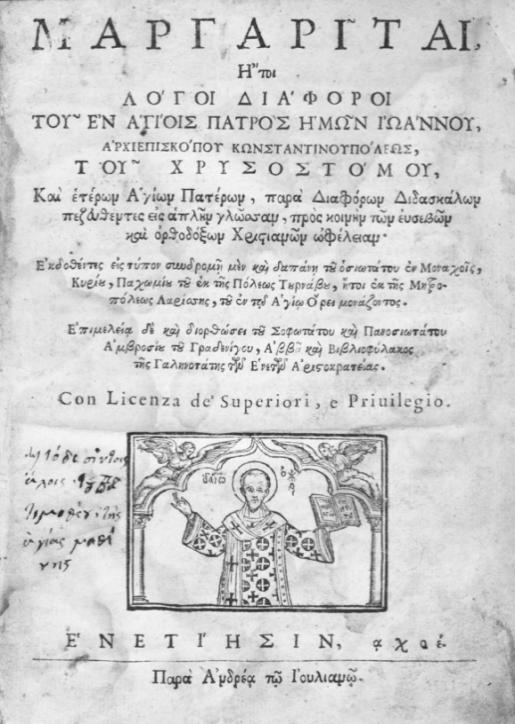 ΜΑΡΓΑΡΙ͂ΤΑΙ,
Η῎τοι
ΛΟ΄ΓΟΙ ΔΙΑ΄ΦΟΡΟΙ
ΤΟΥ͂ ἘΝ ἉΓΙ΄ΟΙΣ ΠΑΤΡΟ`Σ ἩΜΩ͂Ν ἸΩΑ΄ΝΝΟΥ,
ἈΡΧΙΕΠΙΣΚΟ΄ΠΟΥ ΚΩΝΣΤΑΝΤΙΝΟΥΠΟ΄ΛΕΩΣ,
ΤΟΥ͂ ΧΡΥΣΟΣΤΟ΄ΜΟΥ,
Καὶ ἑτέρων Ἁγίων Πατέρων, παρὰ Διαφόρων Διδασκάλων
πεζευθέντες εἰς ἁπλῆν γλῶσσαν, πρὸς κοινὴν τῶν εὐσεβῶν
καὶ ὀρθοδόξων Χριστιανῶν ὠφέλειαν·
Ἐκδοθέντες εἰς τύπον συνδρομῇ μὲν καὶ δαπάνῃ τοῦ ὁσιωτάτου ἐν Μοναχοῖς,
Κυρίου, Παχωμίου τοῦ ἐκ τῆς Πόλεως Τυρνάβου, ἤτοι ἐκ τῆς Μητρο-
πόλεως Λαρίσσης, τοῦ ἐν τῷ Ἁγίῳ Ὄρει μονάζοντος.
Ἐπιμελείᾳ δὲ καὶ διορθώσει τοῦ Σοφωτάτου καὶ Πανοσιωτάτου
Ἀμβροσίου τοῦ Γραδενίγου, Ἀββᾶ καὶ Βιβλιοφύλακος
τῆς Γαληνοτάτης τῶν Ἐνετῶν Ἀριστοκρατείας.
Con Licenza de' Superiori, e Priuilegio.
ἘΝΕΤΙ΄ΗΣΙΝ, ͵αχοέ.
Παρὰ Ἀνδρέᾳ τῷ Ἰουλιανῷ.